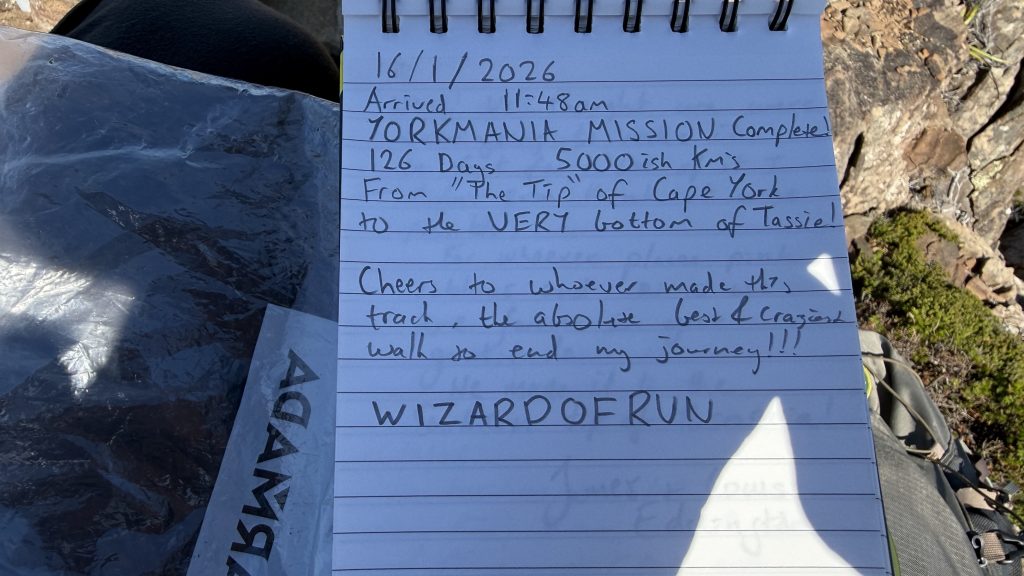 16/1/2026
Arrived 11:48am
YORKMANIA MISSION Complete!
126 Days 5000ish Km's
From "The Tip" of Cape York
to the VERY bottom of Tassie!
Cheers to whoever made this
track, the absolute best & Craziest
walk to end my journey!!!
WIZARDOFRUN
ARMADA